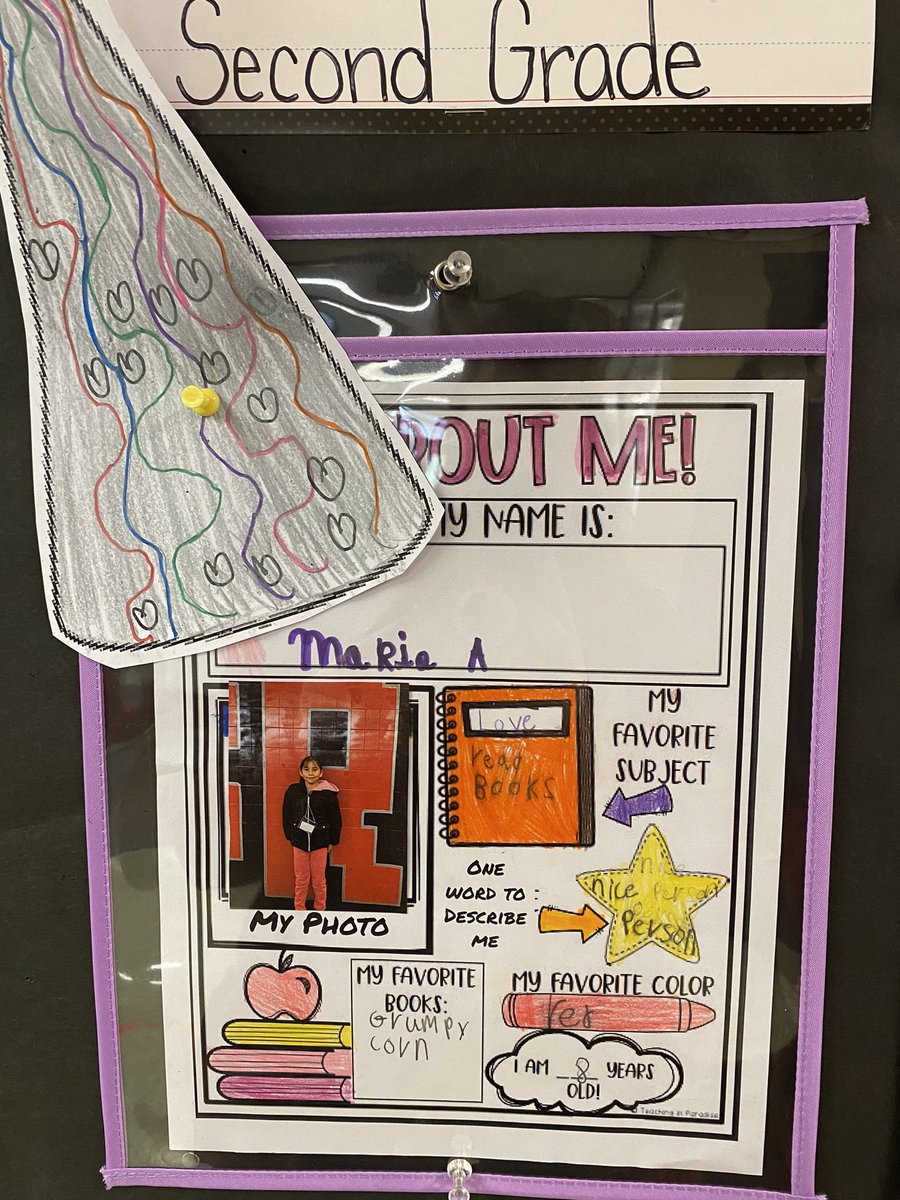 Second Grade
BOUT ME!
MY NAME IS:
Maria A
Love
read
BOOKS
MY
FAVORITE
SUBJECT
ONE
WORD TO :
DESCRIBE :
ME
nice
nice person
Person
MY PHOTO
MY FAVORITE
BOOKS:
Grumpy
corn
MY FAVORITE COLOR
res
I AM 8 YEARS
OLD!
© Teaching in Paradise